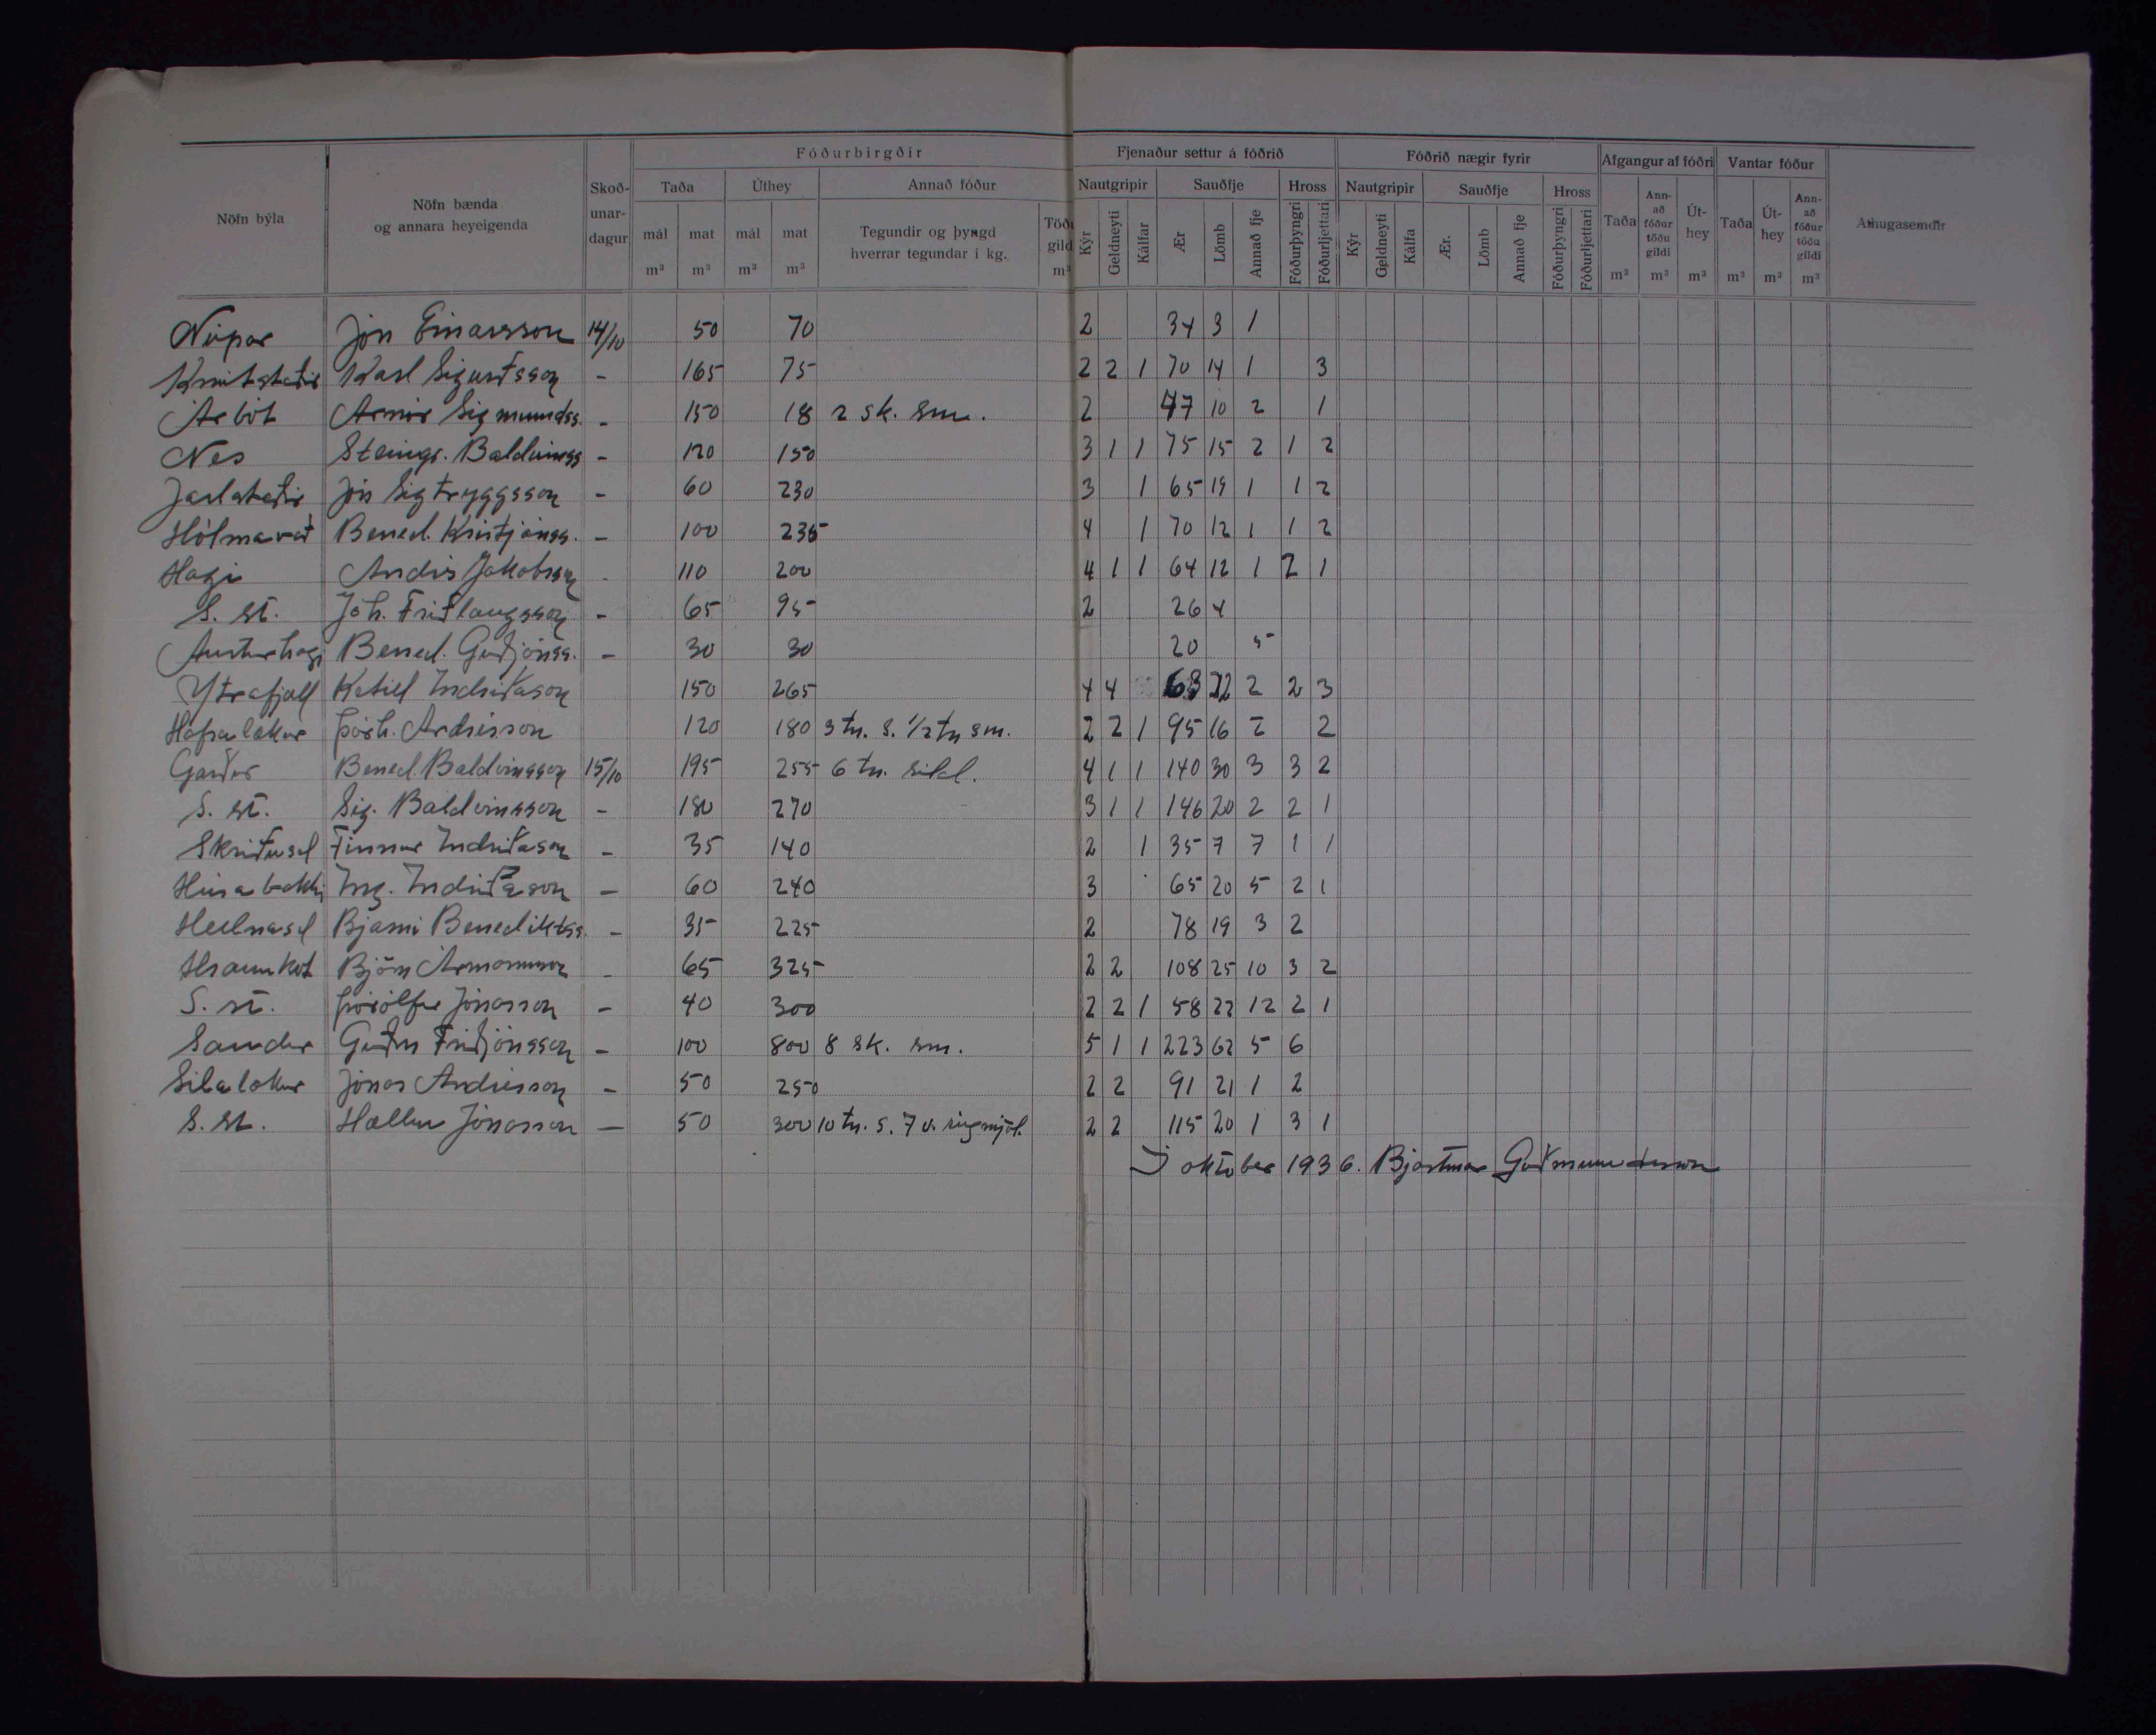 Fóðurbirgðir Fjenaður settur á fóðrið Fóðrið nægir fyrir Afgangur af fóðri Vantar fóður
Nöfn býla Nöfn bænda og annara heyeigenda Skoð-unar-dagur Taða Úthey Annað fóður Nautgripir Sauðfje Hross Nautgripir Sauðfje Hross Taða Ann-að fóður töðu gildi Út-hey Taða Út-hey Ann-að fóður töðu gildi Athugasemdir
mál mat mál mat Tegundir og þyngd hverrar tegundar í kg. Töðu gild Kýr Geldneyti Kálfar Ær Lömb Annað fje Fóðurþyngri Fóðurljettari Kýr Geldneyti Kálfa Ær. Lömb Annað fje Fóðurþyngri Fóðurljettari
m³ m³ m³ m³ m³ m³ m³ m³ m³ m³ m³
Núpar Jón Einarsson 14/10 50 70 2 34 3 1
Knútstaðir Karl Sigurðsson - 165 75 2 2 1 70 14 1 3
Árbót Arnór Sigmundss. - 150 18 2 sk. sm. 2 47 10 2 1
Nes Steingr. Baldvinss - 120 150 3 1 1 75 15 2 1 2
Jarlstaðir Jón Sigtryggsson - 60 230 3 1 65 19 1 1 2
Hólmavað Bened. Kristjánss. - 100 235 4 1 70 12 1 1 2
Hagi Andrés Jakobsson - 110 200 4 1 1 64 12 1 2 1
S. st. Jóh. Friðlaugsson - 65 95 2 26 4
Austurhagi Bened. Guðjónss. - 30 30 20 5
Ytrafjall Ketill Indriðason 150 265 4 4 2 2 3
Hafralækur Þórh. Andrésson 120 180 3 tn. s. 1/2 tn sm. 2 2 1 95 16 2 2
Garður Bened. Baldvinsson 15/10 195 255 6 tn. síld. 4 1 1 140 30 3 3 2
S. st. Sig. Baldvinsson - 180 270 3 1 1 146 20 2 2 1
Skriðusel Finnur Indriðason - 35 140 2 1 35 7 7 1 1
Húsabakki Ing. Indriðason - 60 240 3 65 20 5 2 1
Hellnasel Bjarni Benediktss. - 35 225 2 78 19 3 2
Hraunkot Björn Ármannsson - 65 325 2 2 108 25 10 3 2
S. st. Þórólfur Jónasson - 40 300 2 2 1 58 22 12 2 1
Sandur Guðm Friðjónsson - 100 800 8 sk. sm. 5 1 1 223 62 5 6
Sílalækur Jónas Andrésson - 50 250 2 2 91 21 1 2
S. st. Hallur Jónasson - 50 300 10 tn. s. 7 v. rúgmjöl. 2 2 115 20 1 3 1
Í október 1936. Bjartmar Guðmundsson